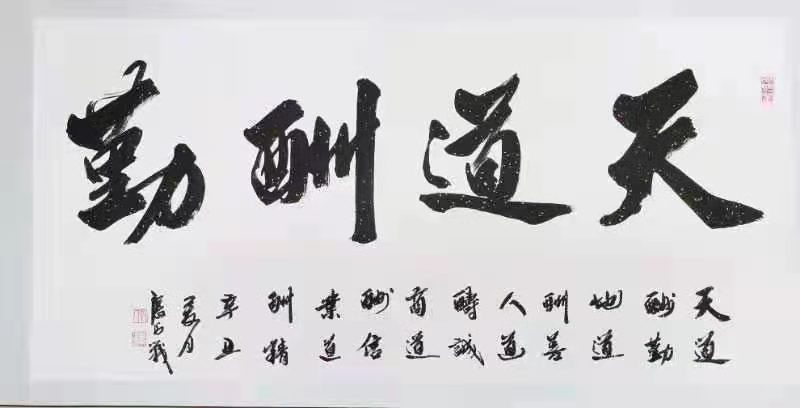 天道酬勤
天道
酬勤
地道
酬善
人道
醻誠
商道
酬信
業道
酬精
辛丑